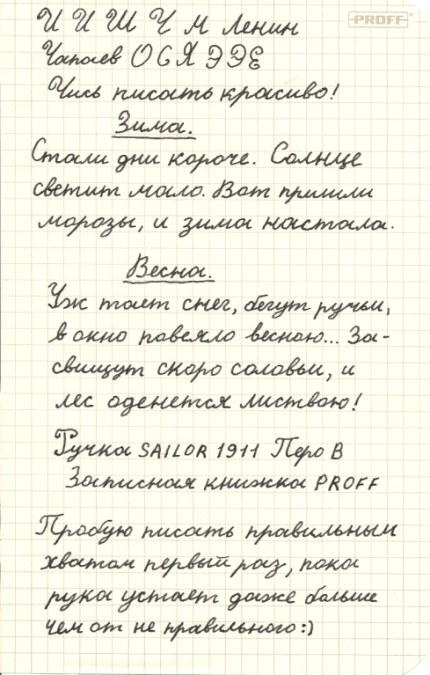 PROFF
И И Ш Ч М Ленин
Чапаев О С Х Э Э Е
Учись писать красиво!
Зима.
Стали дни короче. Солнце
светит мало. Вот пришли
морозы, и зима настала.
Весна.
Уж тает снег, бегут ручьи,
в окно повеяло весною... За-
свищут скоро соловьи, и
лес оденется листвою!
Ручка SAILOR 1911 Перо В
Записная книжка PROFF
Пробую писать правильным
хватом первый раз, пока
рука устает даже больше
чем от не правильного:)